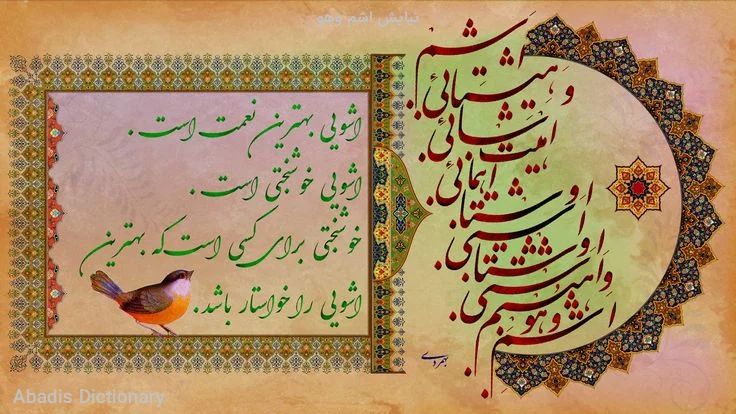 نیایش اشم وهو
اشم وهو
وهیشتم
استی
اوشتا
استی
اوشتا
اهمائی
هیت اشائی
وهیشتائی
اشم
اشویی بهترین نعمت است.
اشویی خوشبختی است.
خوشبختی برای کسی است که بهترین
اشویی را خواستار باشد.
Abadis Dictionary